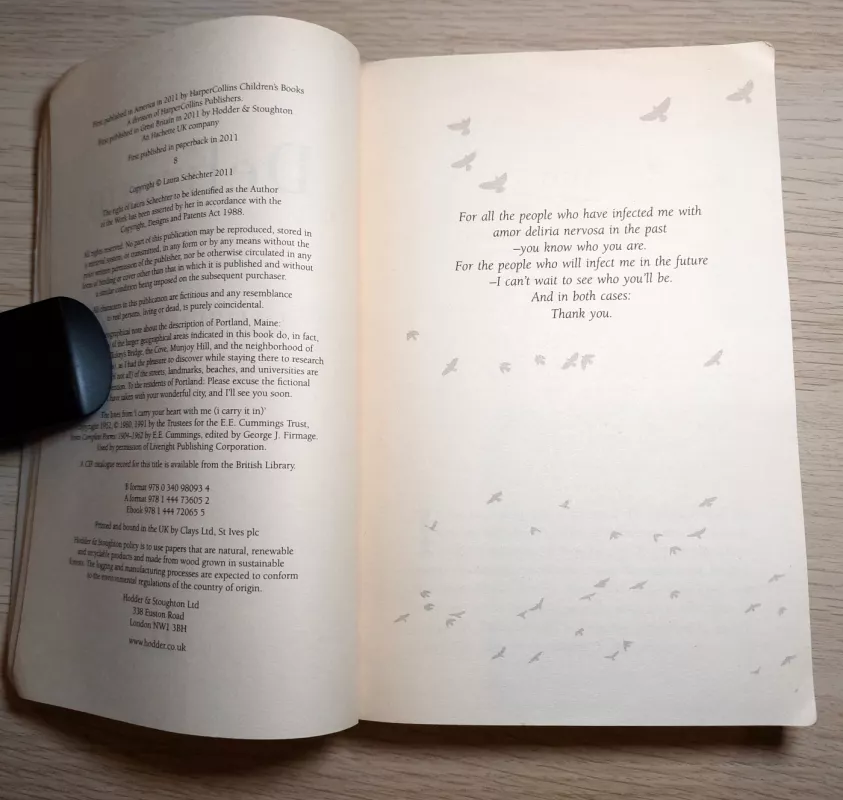 First published in America in 2011 by HarperCollins Children's Books
A division of HarperCollins Publishers.
First published in Great Britain in 2011 by Hodder & Stoughton
An Hachette UK company
First published in paperback in 2011
8
Copyright © Laura Schechter 2011
The right of Laura Schechter to be identified as the Author
of the Work has been asserted by her in accordance with the
Copyright, Designs and Patents Act 1988.
All rights reserved. No part of this publication may be reproduced, stored in
a retrieval system, or transmitted, in any form or by any means without the
prior written permission of the publisher, nor be otherwise circulated in any
form of binding or cover other than that in which it is published and without
a similar condition being imposed on the subsequent purchaser.
All characters in this publication are fictitious and any resemblance
to real persons, living or dead, is purely coincidental.
geographical note about the description of Portland, Maine:
of the larger geographical areas indicated in this book do, in fact,
Bridge, the Cove, Munjoy Hill, and the neighborhood of
as I had the pleasure to discover while staying there to research
not all) of the streets, landmarks, beaches, and universities are
To the residents of Portland: Please excuse the fictional
have taken with your wonderful city, and I'll see you soon.
The lines from 'i carry your heart with me (i carry it in)'
Copyright 1952, © 1980, 1991 by the Trustees for the E.E. Cummings Trust,
from Complete Poems: 1904–1962 by E.E. Cummings, edited by George J. Firmage.
Used by permission of Liveright Publishing Corporation.
A CIP catalogue record for this title is available from the British Library.
B format 978 0 340 98093 4
A format 978 1 444 73605 2
Ebook 978 1 444 72065 5
Printed and bound in the UK by Clays Ltd, St Ives plc
Hodder & Stoughton policy is to use papers that are natural, renewable
and recyclable products and made from wood grown in sustainable
forests. The logging and manufacturing processes are expected to conform
to the environmental regulations of the country of origin.
Hodder & Stoughton Ltd
338 Euston Road
London NW1 3BH
www.hodder.co.uk
For all the people who have infected me with
amor deliria nervosa in the past
–you know who you are.
For the people who will infect me in the future
–I can't wait to see who you'll be.
And in both cases:
Thank you.